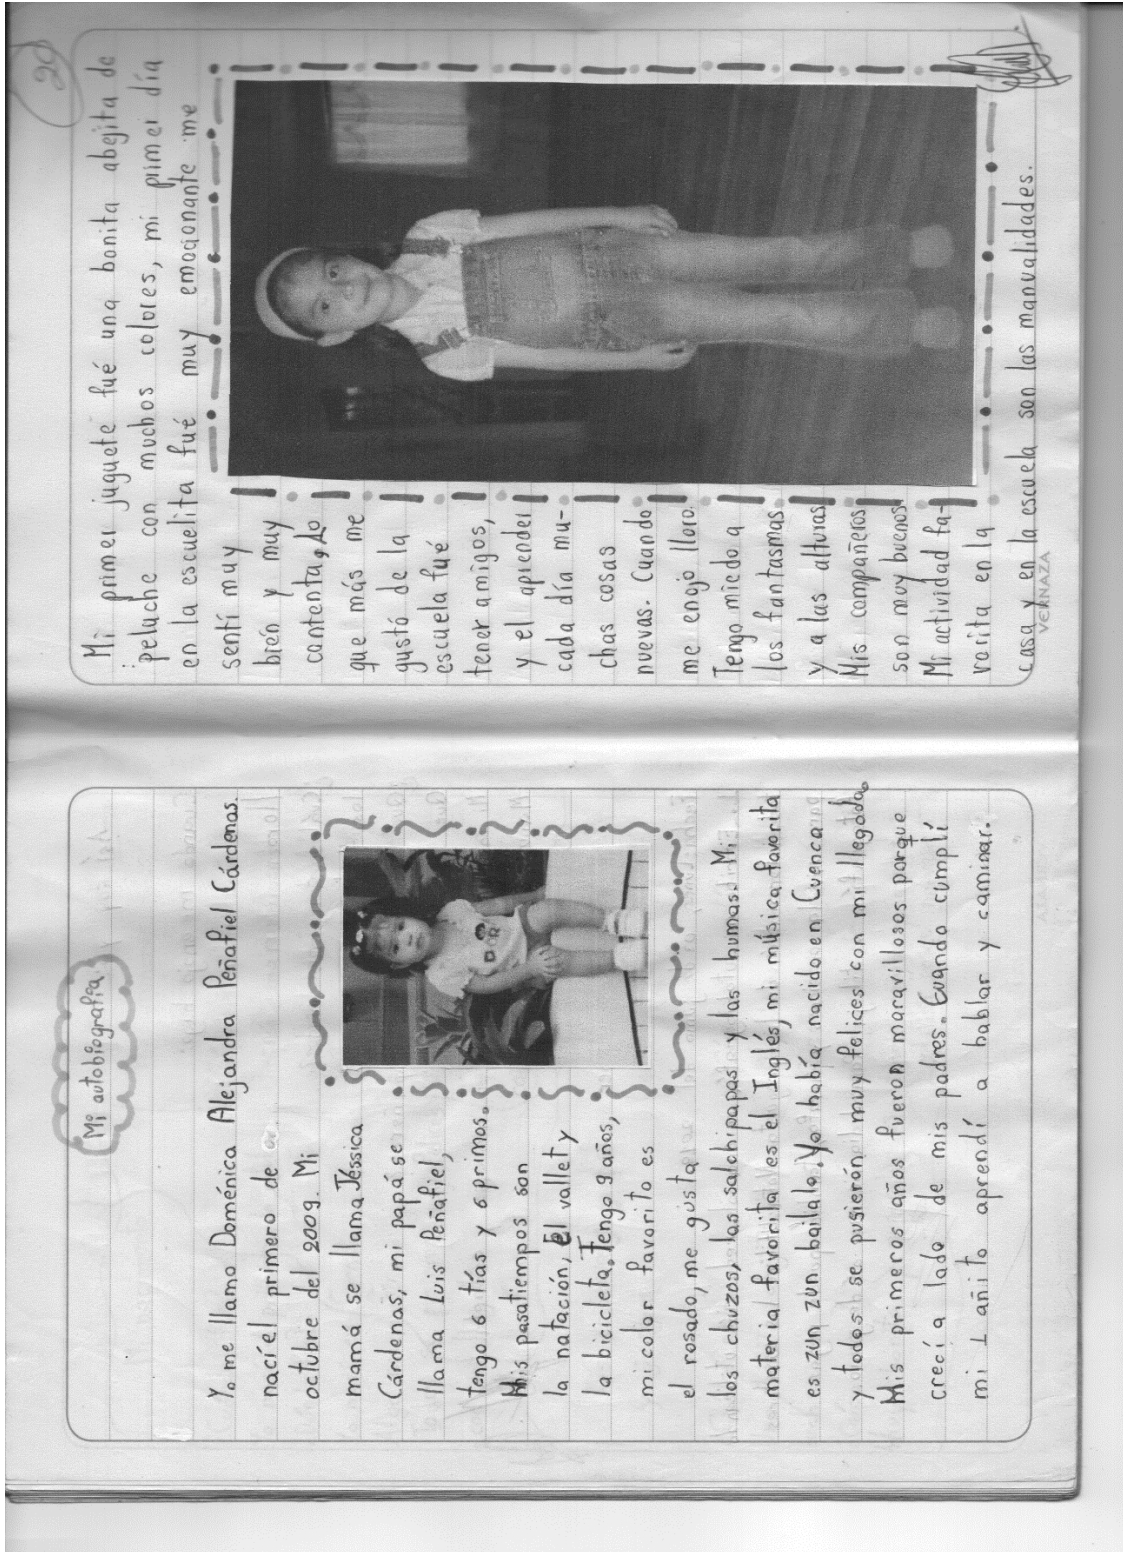 Mi autobiografía
Yo me llamo Doménica Alejandra Peñafiel Cárdenas.
nací el primero de
octubre del 2009. Mi
mamá se llama Jéssica
Cárdenas, mi papá se
llama Luis Peñafiel,
tengo 6 tías y 6 primos.
Mis pasatiempos son
la natación, El vallet y
la bicicleta. Tengo 9 años,
mi color favorito es
el rosado, me gusta
los chuzos, las salchipapas y las humas. Mi
material favorita es el Inglés, mi música favorita
es zun zun bailalo. Yo había nacido en Cuenca
y todos se pusierón muy felices con mi llegada.
Mis primeros años fueron maravillosos porque
crecí a lado de mis padres. Cuando cumplí
mi 1 añito aprendí a hablar y caminar.
20
Mi primer juguete fué una bonita abejita de
peluche con muchos colores, mi primer día
en la escuelita fué muy emocionante me
sentí muy
bién y muy
contenta, Lo
que más me
gustó de la
escuela fué
tener amigos,
y el aprender
cada día mu-
chas cosas
nuevas. Cuando
me enojo lloro.
Tengo miedo a
los fantasmas
y a las alturas
Mis compañeros
son muy buenos
Mi actividad fa-
vorita en la
casa y en la escuela son las manualidades.
VERNAZA